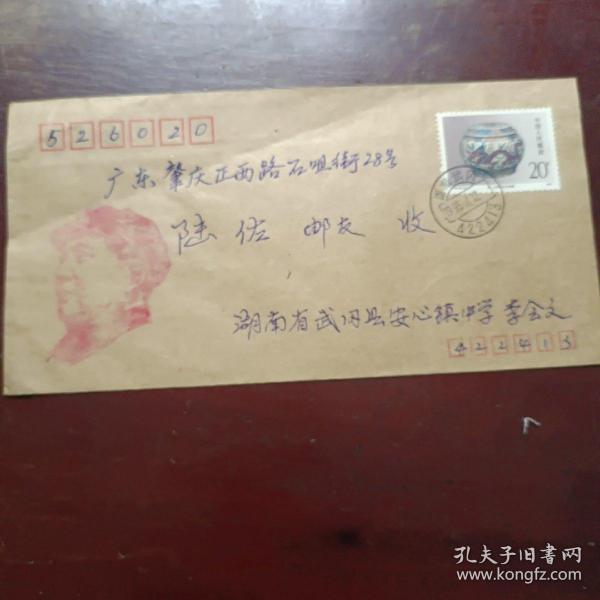 526020
广东肇庆正西路石咀街28号
陆佐 邮友 收
中国人民邮政
20分
422413
湖南省武冈县安心镇中学 李会文
422413
孔夫子旧書网
www.kongfz.com